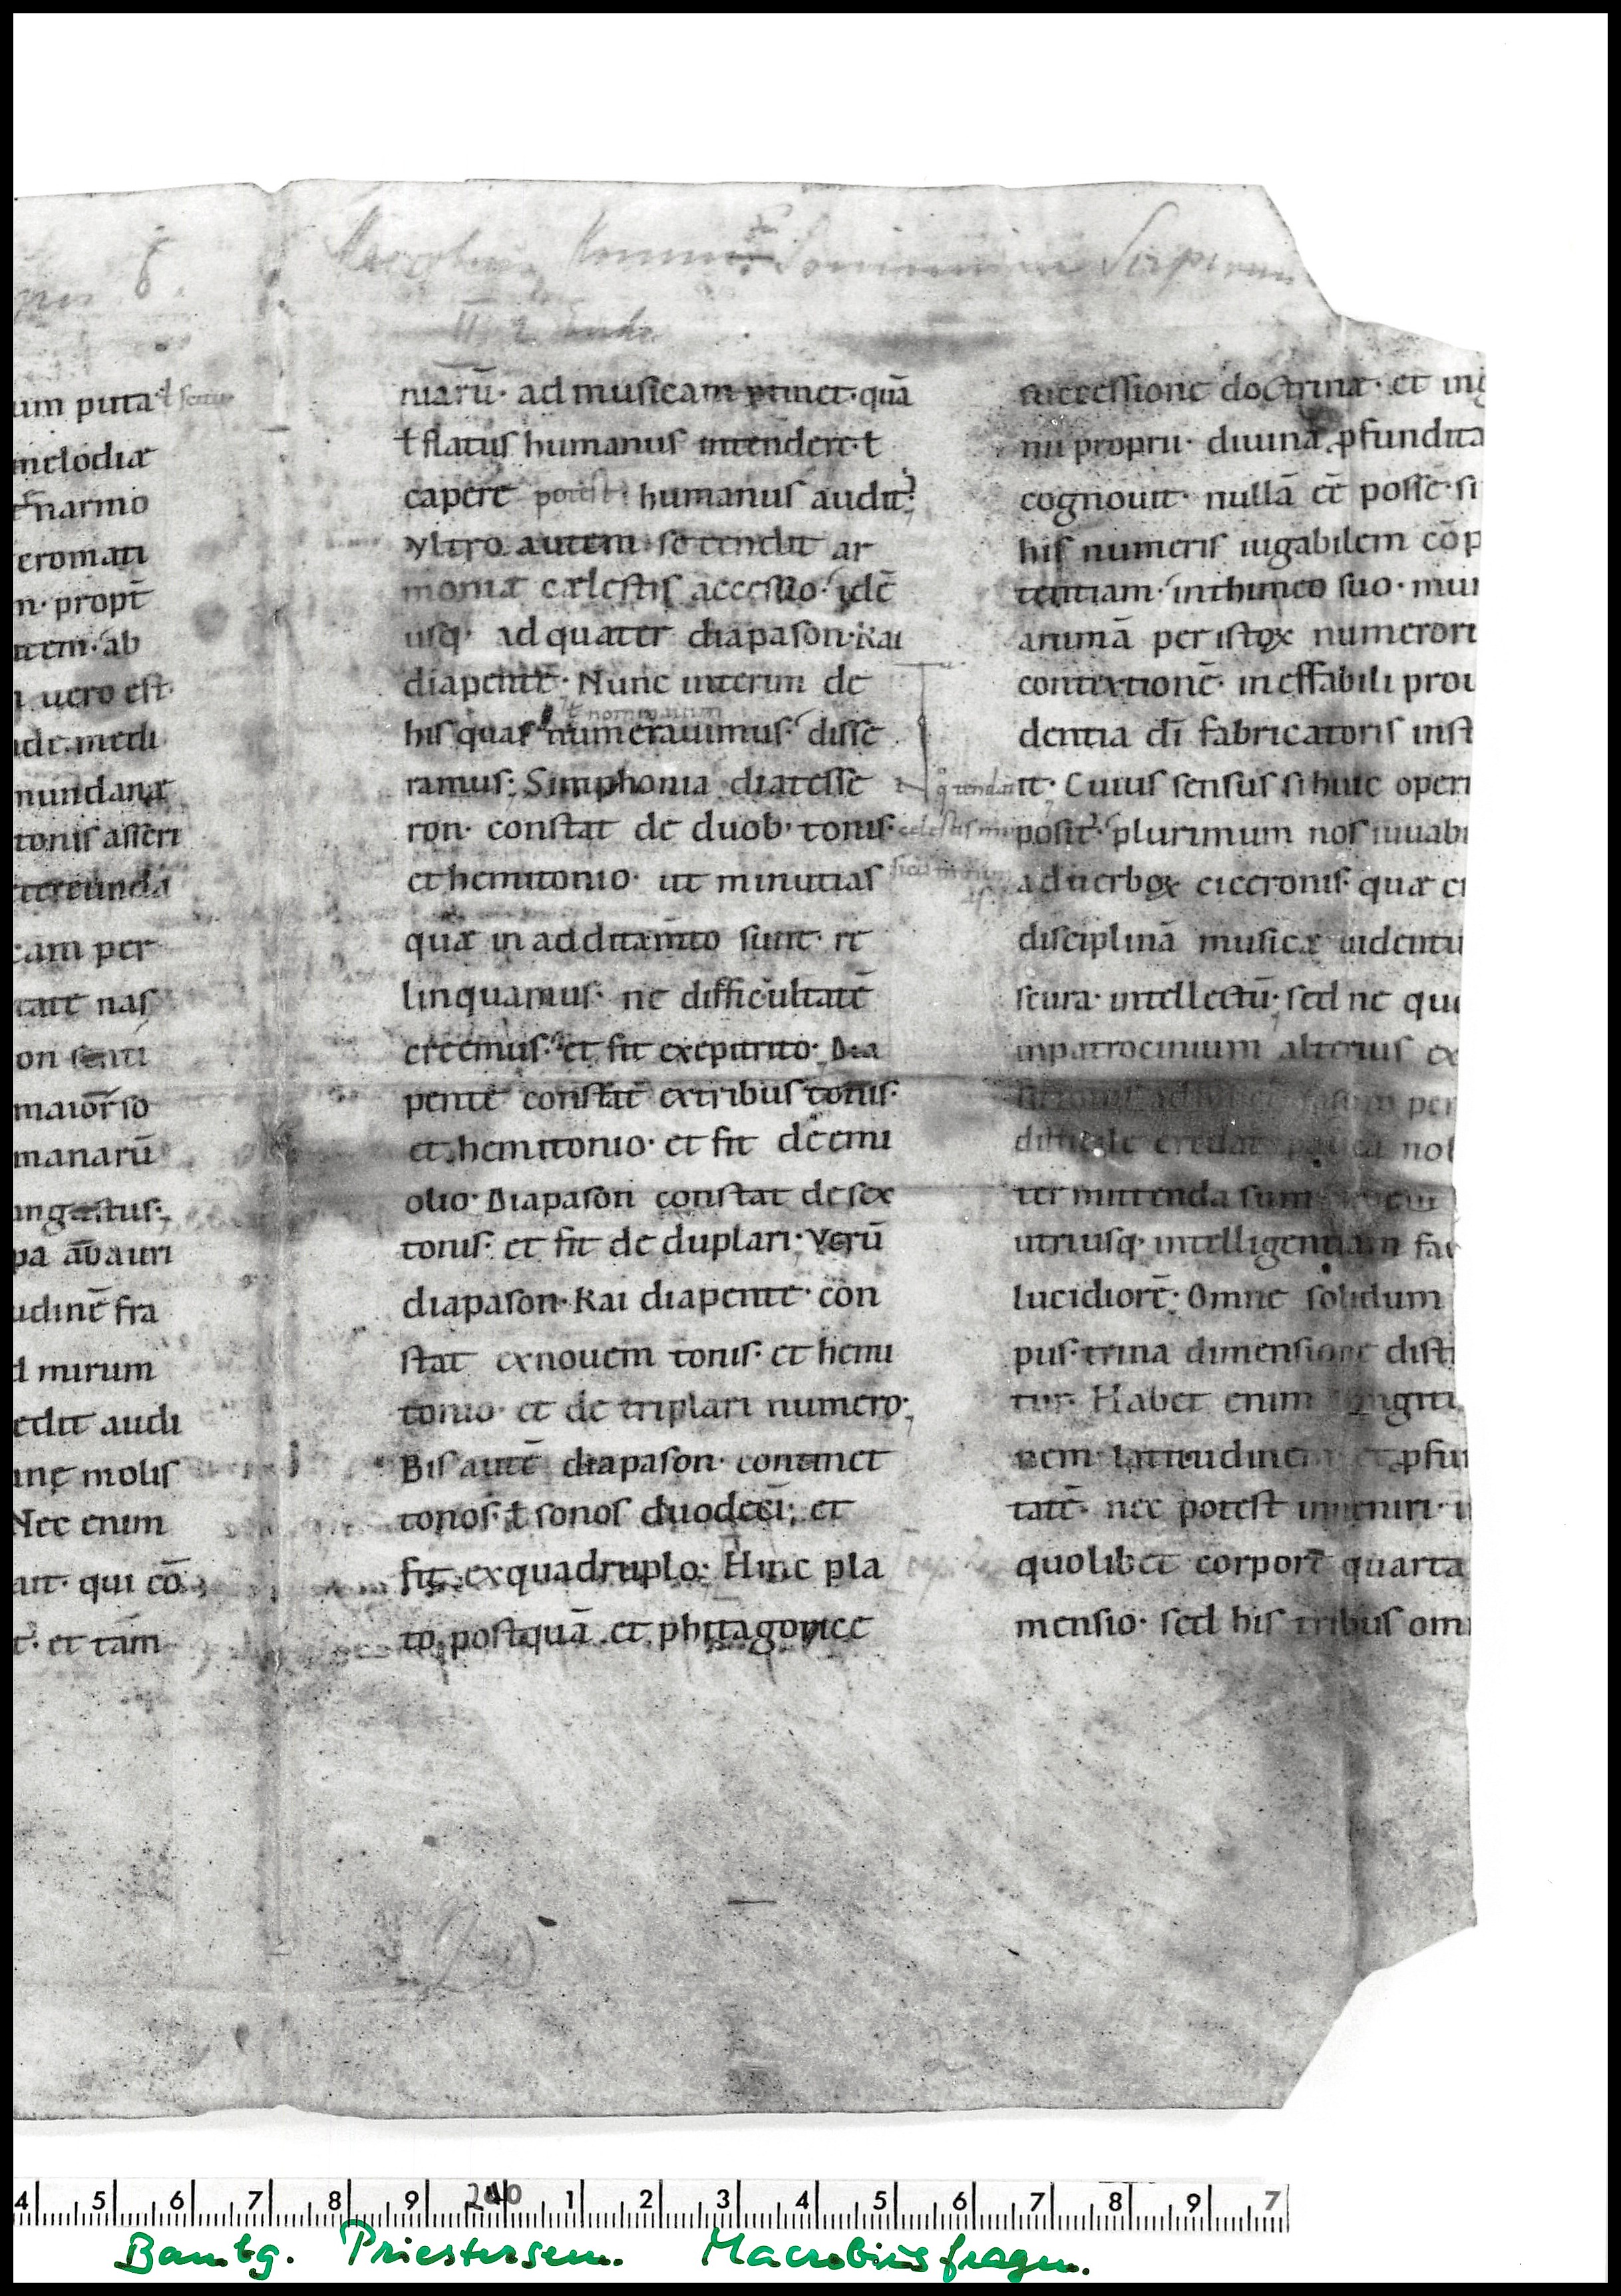 Macrobius Komm. Somnium Scipionis
II, 2 Ende
um puta
melodiæ
narmo
cromati
n· propt̄
item· ab
n uero est·
nde medi
mundanæ
tonis asseri
tereunda
am per
tate nas
on senti
maior so
manarū
angustus·
pa ab auri
udinē fra
d mirum
edit audi
inę molis
Nec enim
ait· qui cō
et tam
niarū· ad musicam ꝑtinet· quā
ł flatus humanus intendere· ł
capere potest· humanus audit᷒
Vltro autem se tendit ar
moniæ cælestis accessio· idē
usq· ad quater diapason· kai
diapente· Nunc interim de
ł nominauimus
his quas numerauimus· disse
ramus; Simphonia diatesse
ron· constat de duob· tonis·
et hemitonio· ut minutias
quæ in additam̄to sunt· re
linquamus· ne difficultatē
creemus· et fit ex epitrito· Dia
pente constat ex tribus tonis·
et hemitonio· et fit de emi
olio· Diapason constat de sex
tonis· et fit de duplari· Verū
diapason· kai diapente· con
stat ex nouem tonis· et hemi
tonio· et de triplari numero·
Bis autē diapason· continet
tonos· ł sonos duodeci; et
fit ex quadruplo· Hinc pla
to postquā et phitagoricę
q tendat
celestis mu
successione doctrinæ· et ing
nii proprii· diuina ꝓfundita
cognouit· nullā eē posse· si
his numeris iugabilem cōp
tentiam· in thimeo suo· mun
animā per istoꝝ numeroru
contextionē· ineffabili proui
dentia dī fabricatoris inst
it· Cuius sensus si huic operi
posit᷒· plurimum nos iuuabi
ad uerboꝝ ciceronis· quæ ci
disciplinā musicæ uidentu
scura· intellectū· sed ne quo
in patrocinium alterius ex
per
difficile credat pauca not
ter mittenda sunt
utriusq· intelligentiam fac
lucidiorē· Omne solidum
pus· trina dimensione disti
tur· Habet enim longitu
nem· latitudinem· et ꝓfun
tatē· nec potest inueniri· i
quolibet corpore quarta
mensio· sed his tribus omn
4 5 6 7 8 9 200 1 2 3 4 5 6 7 8 9 7
Bambg. Priestersem. Macrobiusfragm.